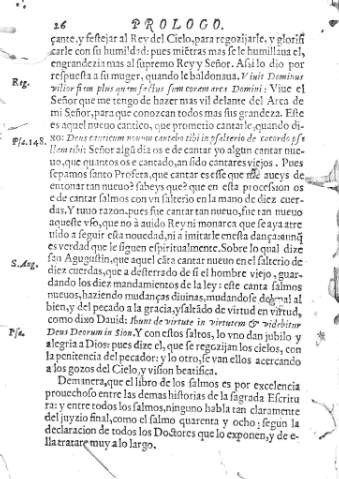 26 PROLOGO.
çante, y festejar al Rey del Cielo, para regozijarle, y glorifi
carle con su humildad: pues miētras mas se le humillaua el,
engrandezia mas al supremo Rey y Señor. Assi lo dio por
respuesta a su muger, quando le baldonaua. Viuit Dominus
Reg.
vilior fiam plus quam factus sum coram arca Domini: Viue el
Señor que me tengo de hazer mas vil delante del Arca de
mi Señor, para que conozcan todos mas sus grandeza. Este
es aquel nueuo cantico, que prometio cantarle, quando di-
Psa.148.
xo: Deus canticum nouum cantabo tibi in psalterio de cacordo psa
llam tibi: Señor algū diz os e de cantar yo algun cantar nue-
uo, que quantos os e cantado, an sido cantares viejos. Pues
sepamos santo Profeta, que cantar es esse que me aueys de
entonar tan nueuo? sabeys que? que en esta procession os
e de cantar salmos con vn salterio en la mano de diez cuer-
das. Y tuuo razon, pues fue cantar tan nueuo, fue tan nueuo
aqueste vso, que no à auido Rey ni monarca que se aya atre
uido a seguir esta nouedad, ni a imitarle en esta dança: aunq̄
es verdad que le siguen espiritualmente. Sobre lo qual dize
S. Aug.
san Agugustin, que aquel cāta cantar nueuo en el salterio de
diez cuerdas, que a desterrado de si el hombre viejo, guar-
dando los diez mandamientos de la ley: este canta salmos
nueuos, haziendo mudanças diuinas, mudandose de mal al
bien, y del pecado a la gracia, y saltādo de virtud en virtud,
como dixo Dauid: Ibunt de virtute in virtutem & videbitur
Psa.
Deus Deorum in Sion. Y con estos saltos, lo vno dan jubilo y
alegria a Dios: pues dize el, que se regozijan los cielos, con
la penitencia del pecador: y lo otro, se van ellos acercando
a los gozos del Cielo, y vision beatifica.
Demanera, que el libro de los salmos es por excelencia
prouechoso entre las demas historias de la sagrada Escritu
ra: y entre todos los salmos, ninguno habla tan claramente
del juyzio final, como el salmo quarenta y ocho: segun la
declaracion de todos los Doctores que lo exponen, y de e-
lla tratare muy a lo largo.